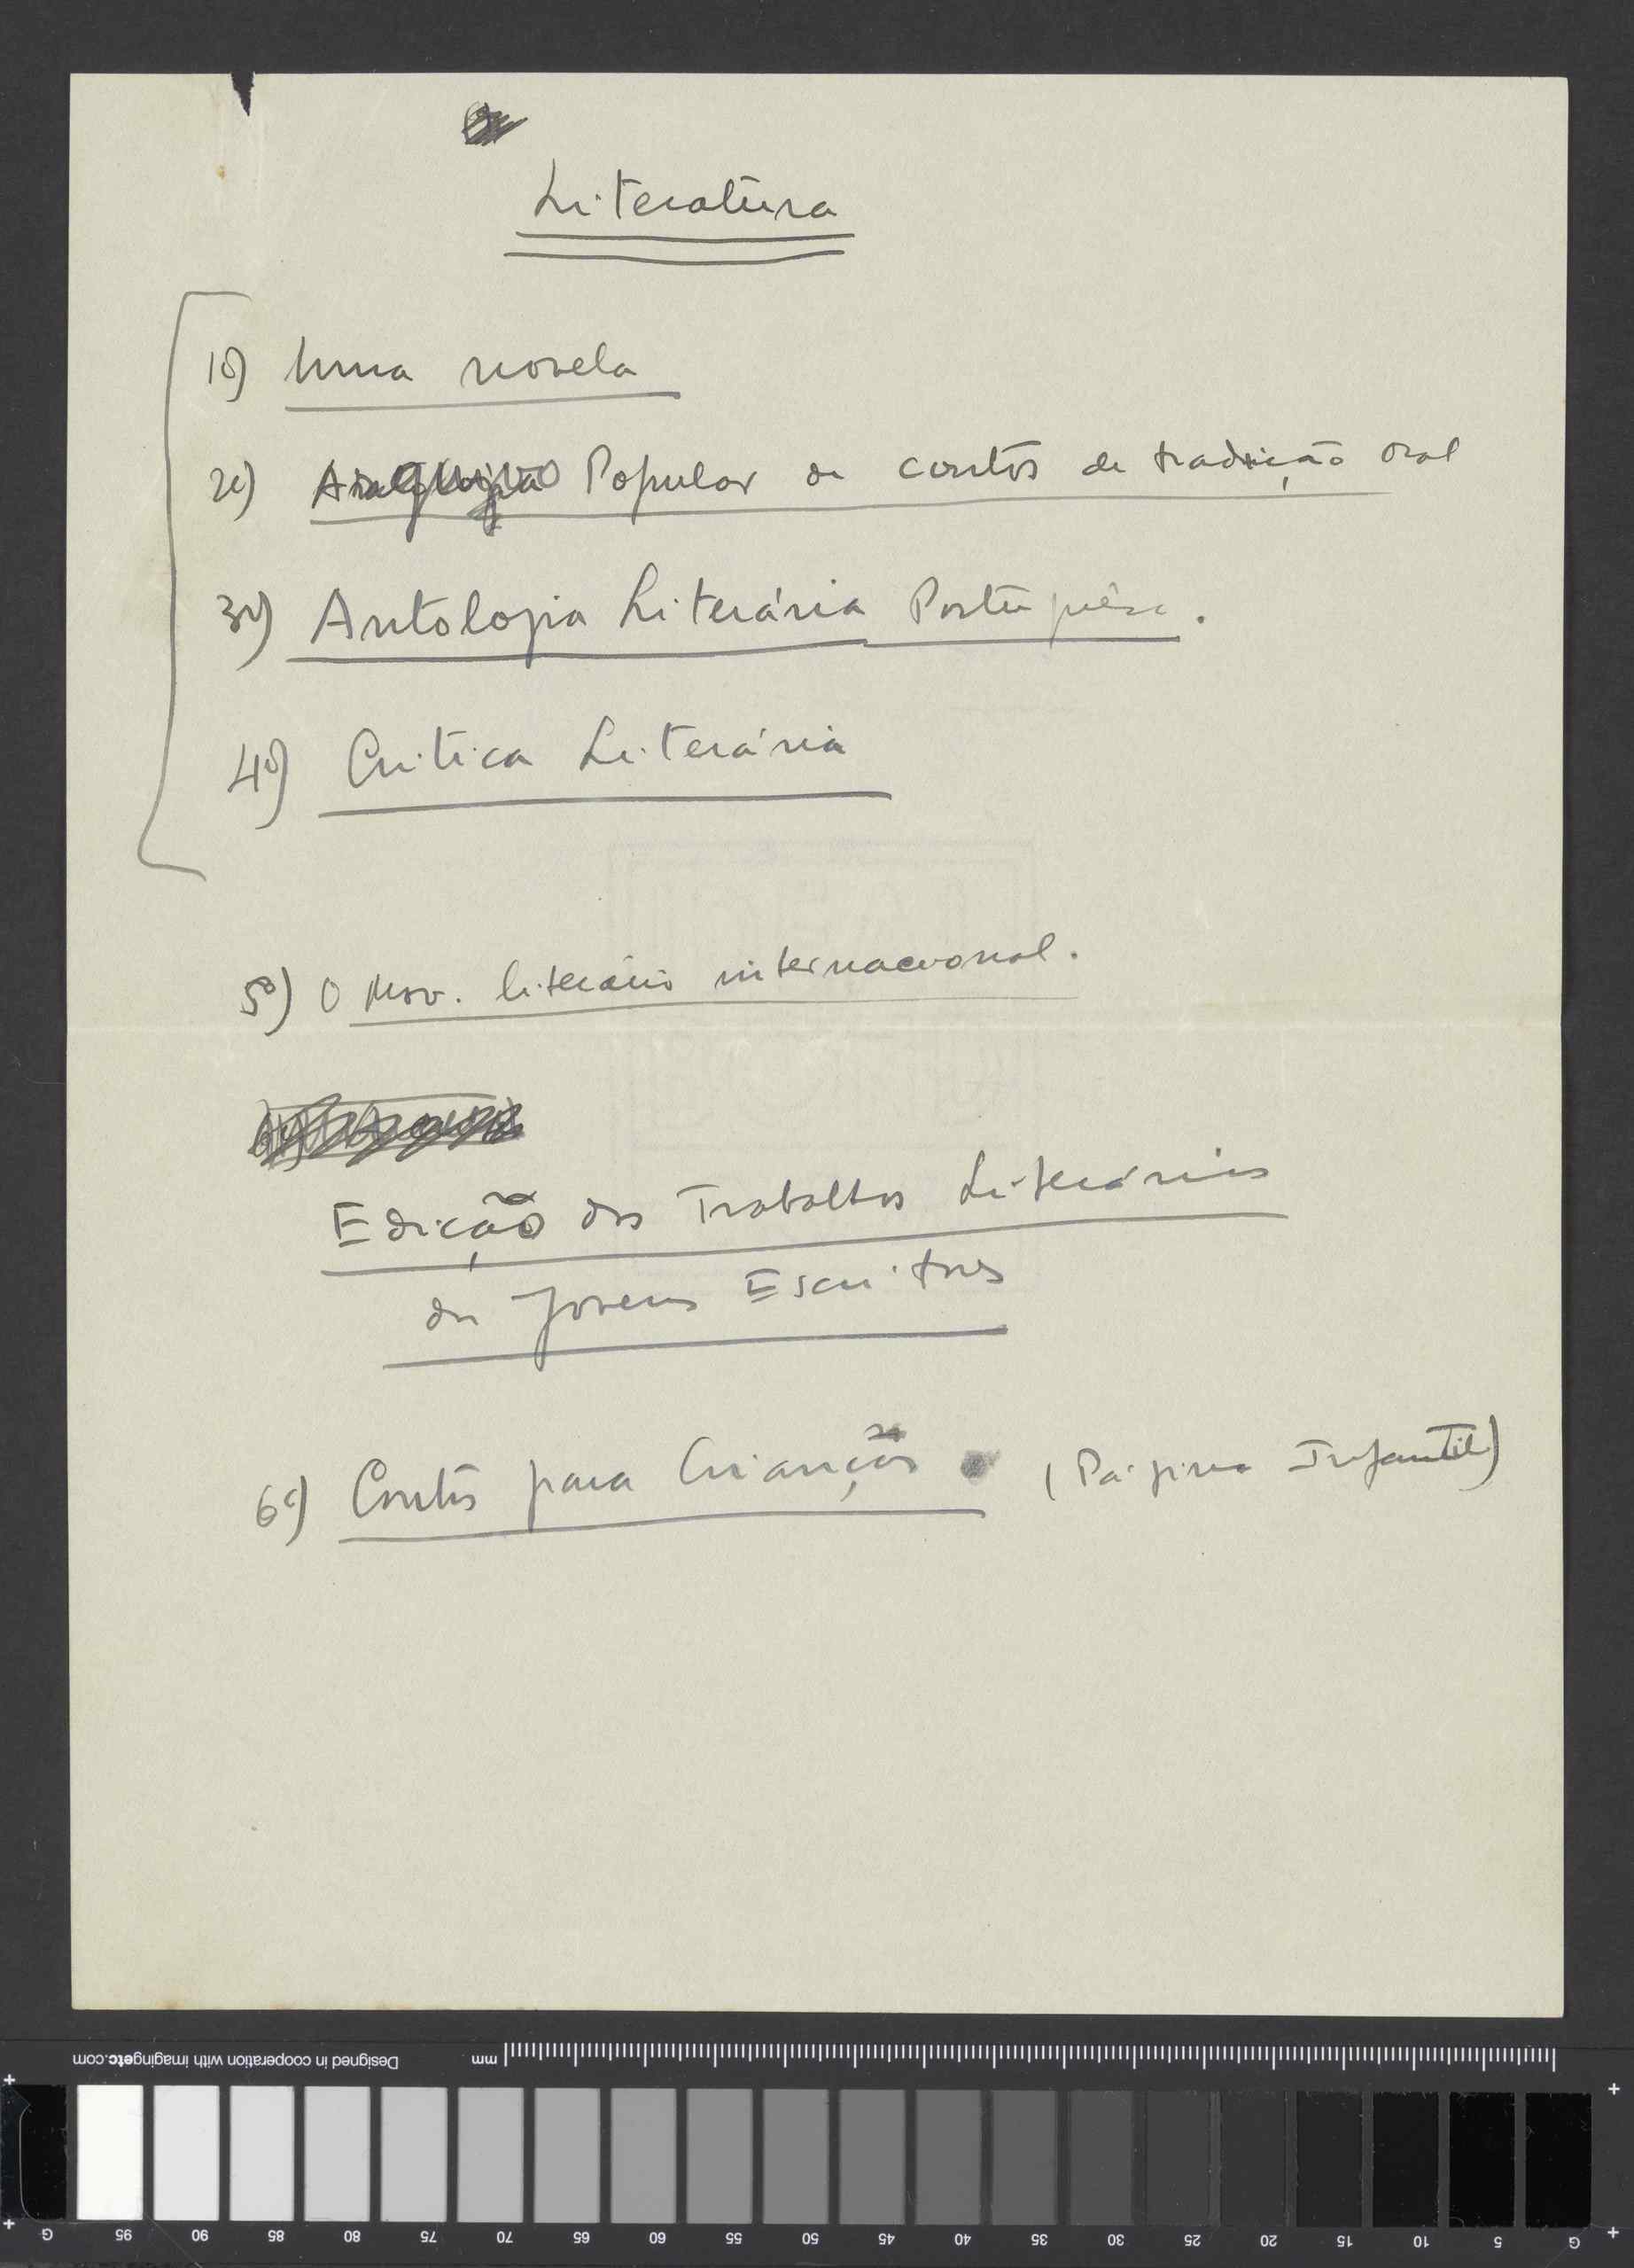 Literatura
1º) Uma novela
2º) Popular de contos de tradição oral
3º) Antologia Literária Portuguêsa.
4º) Critica Literária
5º) O Mov. literário internacional.
Edição dos Trabalhos Literários
de Jovens Escritores
6º) Contos para Crianças (Página Infantil)
Designed in cooperation with imagingetc.com
mm
G 95 90 85 80 75 70 65 60 55 50 45 40 35 30 25 20 15 10 5 G